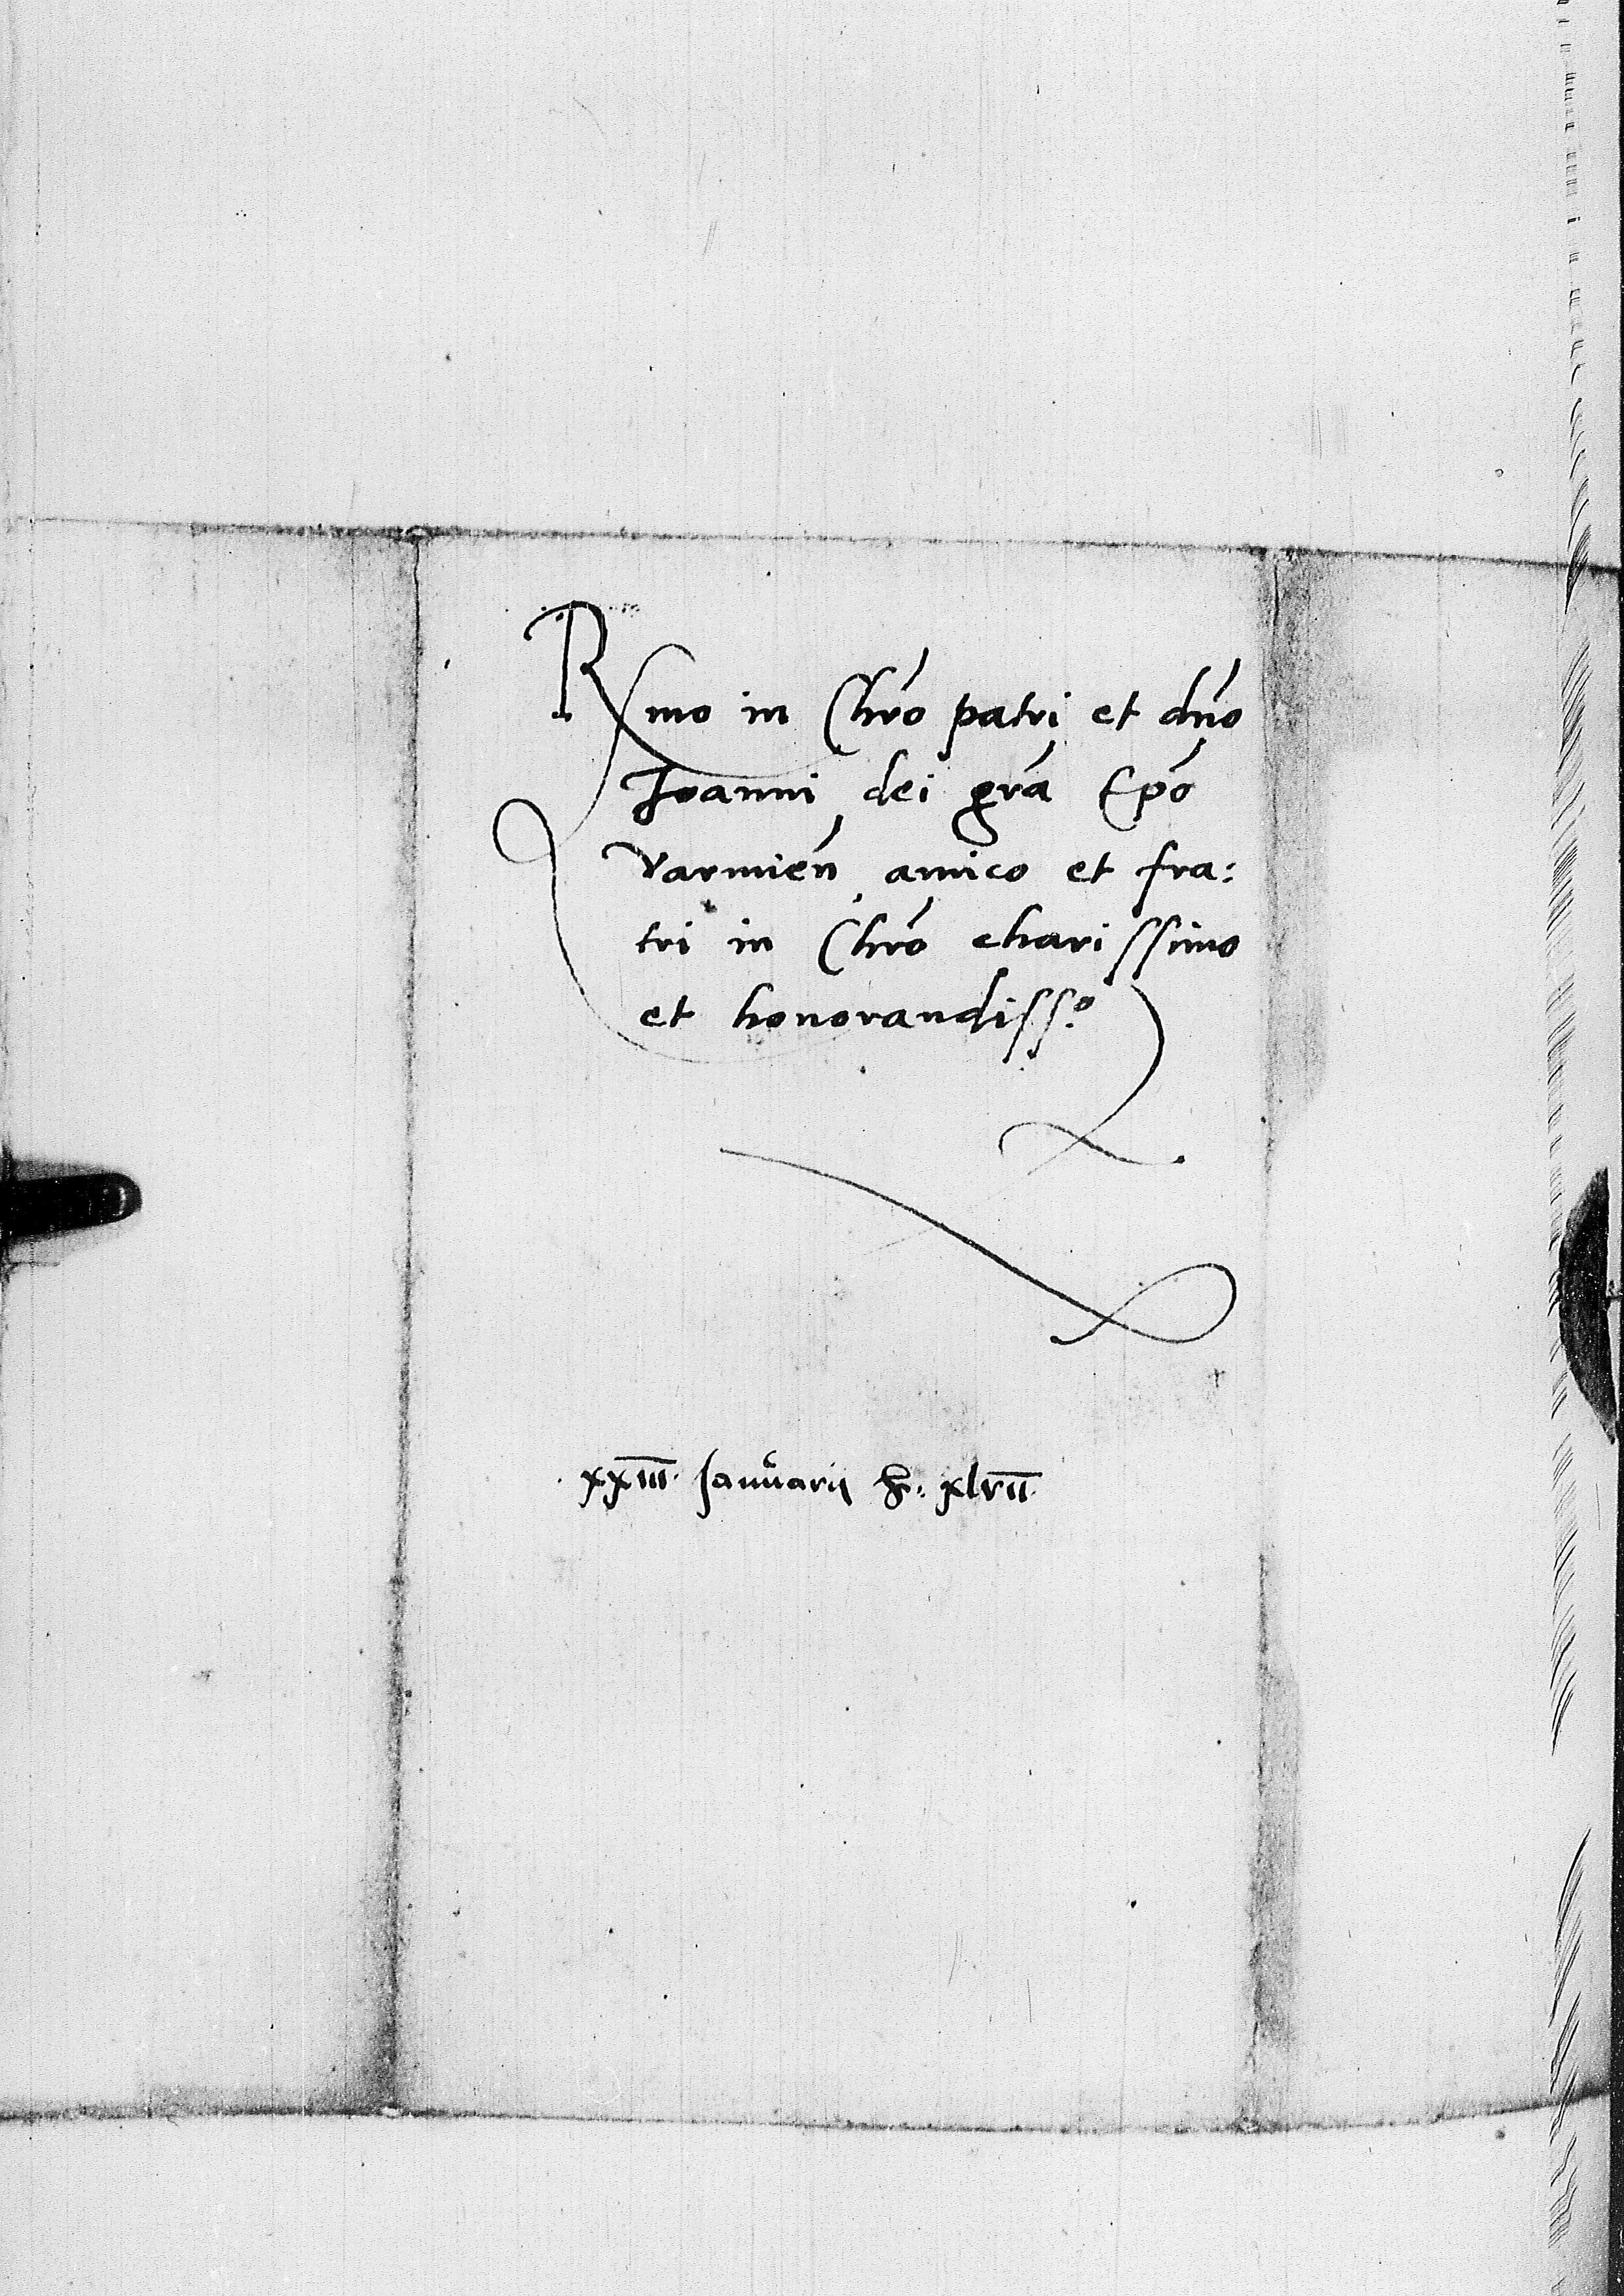 Rmo in Chro patri et dno
Joanni dei gra Epo
Varmien amico et fra:
tri in Chro charissimo
et honorandisso
xxiii Januarii xlvii